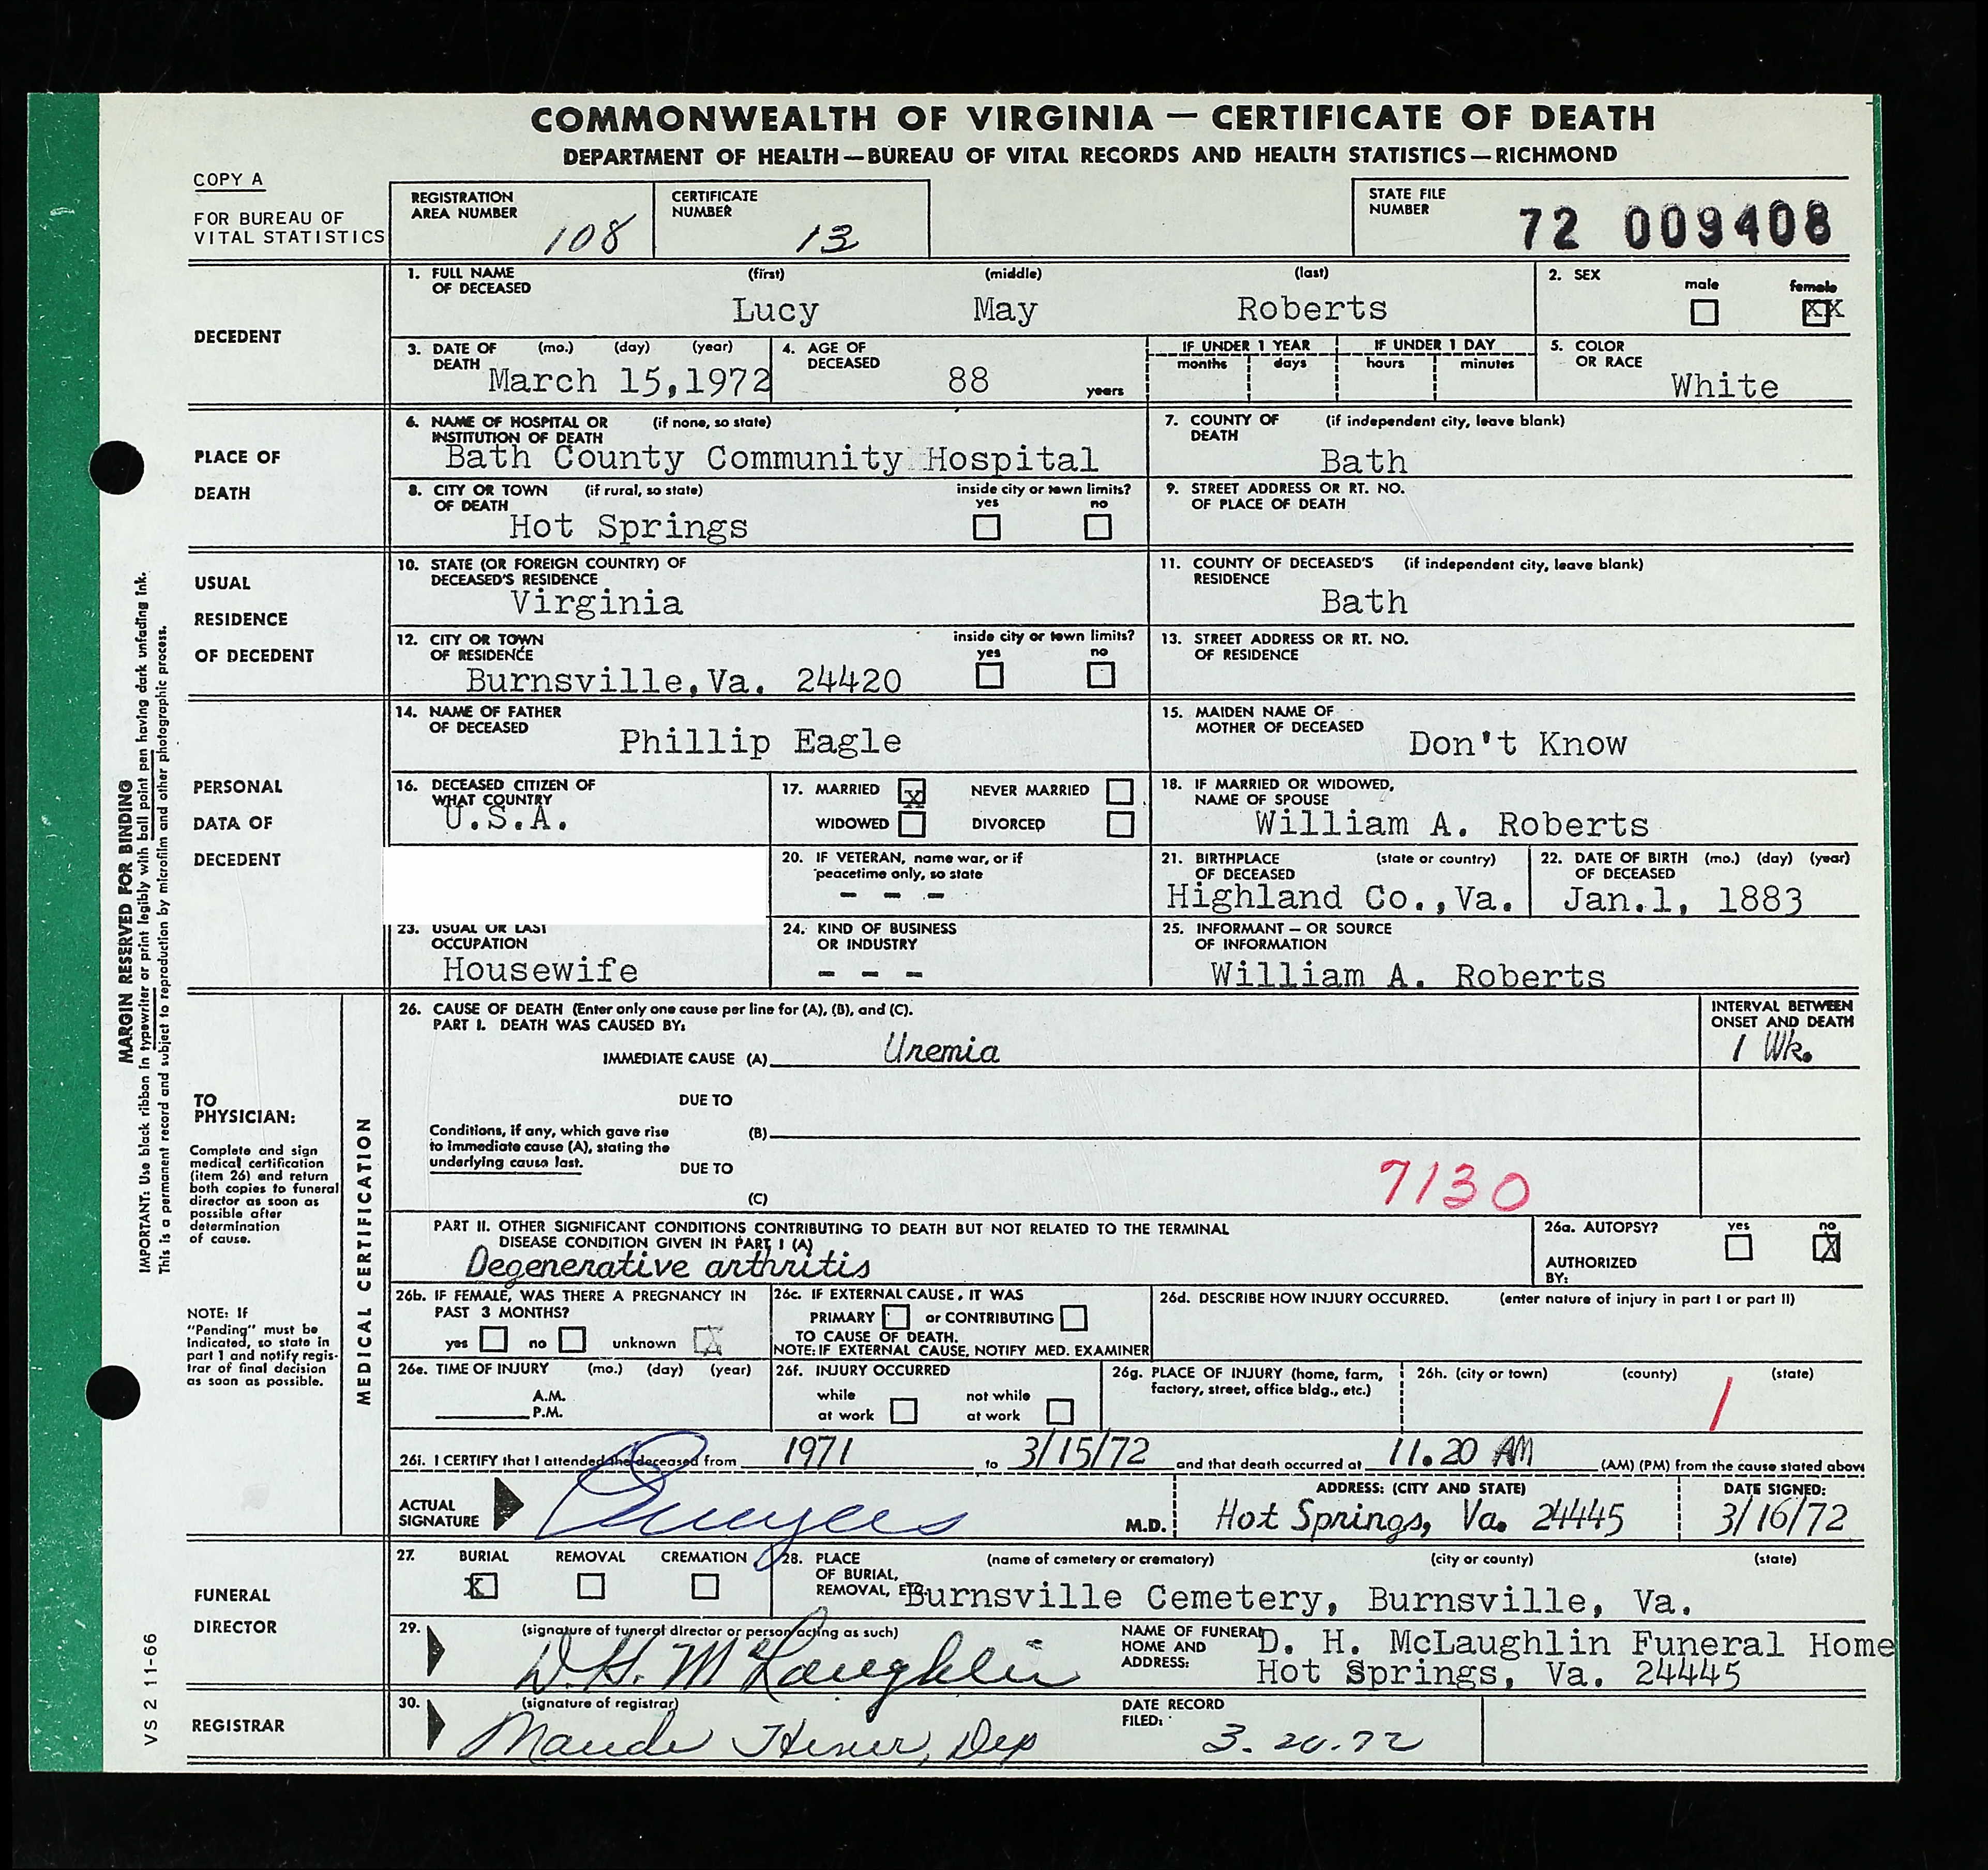 COMMONWEALTH OF VIRGINIA — CERTIFICATE OF DEATH
DEPARTMENT OF HEALTH—BUREAU OF VITAL RECORDS AND HEALTH STATISTICS—RICHMOND
COPY A
FOR BUREAU OF
VITAL STATISTICS
REGISTRATION
AREA NUMBER 108
CERTIFICATE
NUMBER 13
STATE FILE
NUMBER 72 009408
DECEDENT
1. FULL NAME (first) (middle) (last)
OF DECEASED
Lucy May Roberts
2. SEX male female
XX
3. DATE OF (mo.) (day) (year)
DEATH March 15,1972
4. AGE OF
DECEASED 88 years
IF UNDER 1 YEAR IF UNDER 1 DAY
months days hours minutes
5. COLOR
OR RACE
White
PLACE OF
DEATH
6. NAME OF HOSPITAL OR (if none, so state)
INSTITUTION OF DEATH
Bath County Community Hospital
7. COUNTY OF (if independent city, leave blank)
DEATH
Bath
8. CITY OR TOWN (if rural, so state) inside city or town limits?
OF DEATH yes no
Hot Springs
9. STREET ADDRESS OR RT. NO.
OF PLACE OF DEATH
USUAL
RESIDENCE
OF DECEDENT
10. STATE (OR FOREIGN COUNTRY) OF
DECEASED'S RESIDENCE
Virginia
11. COUNTY OF DECEASED'S (if independent city, leave blank)
RESIDENCE
Bath
12. CITY OR TOWN inside city or town limits?
OF RESIDENCE yes no
Burnsville,Va. 24420
13. STREET ADDRESS OR RT. NO.
OF RESIDENCE
PERSONAL
DATA OF
DECEDENT
14. NAME OF FATHER
OF DECEASED
Phillip Eagle
15. MAIDEN NAME OF
MOTHER OF DECEASED
Don't Know
16. DECEASED CITIZEN OF
WHAT COUNTRY
U.S.A.
17. MARRIED X NEVER MARRIED
WIDOWED DIVORCED
18. IF MARRIED OR WIDOWED,
NAME OF SPOUSE
William A. Roberts
20. IF VETERAN, name war, or if
peacetime only, so state
- - -
21. BIRTHPLACE (state or country)
OF DECEASED
Highland Co.,Va.
22. DATE OF BIRTH (mo.) (day) (year)
OF DECEASED
Jan.1, 1883
23. USUAL OR LAST
OCCUPATION
Housewife
24. KIND OF BUSINESS
OR INDUSTRY
- - -
25. INFORMANT — OR SOURCE
OF INFORMATION
William A. Roberts
MARGIN RESERVED FOR BINDING
IMPORTANT: Use black ribbon in typewriter or print legibly with ball point pen having dark unfading ink.
This is a permanent record and subject to reproduction by microfilm and other photographic process.
TO
PHYSICIAN:
Complete and sign
medical certification
(item 26) and return
both copies to funeral
director as soon as
possible after
determination
of cause.
NOTE: If
"Pending" must be
indicated, so state in
part 1 and notify regis-
trar of final decision
as soon as possible.
MEDICAL CERTIFICATION
26. CAUSE OF DEATH (Enter only one cause per line for (A), (B), and (C).
PART I. DEATH WAS CAUSED BY:
INTERVAL BETWEEN
ONSET AND DEATH
IMMEDIATE CAUSE (A) Uremia 1 Wk.
DUE TO
Conditions, if any, which gave rise (B)
to immediate cause (A), stating the
underlying cause last. DUE TO
(C)
7130
PART II. OTHER SIGNIFICANT CONDITIONS CONTRIBUTING TO DEATH BUT NOT RELATED TO THE TERMINAL
DISEASE CONDITION GIVEN IN PART I (A)
Degenerative arthritis
26a. AUTOPSY? yes no
X
AUTHORIZED
BY:
26b. IF FEMALE, WAS THERE A PREGNANCY IN
PAST 3 MONTHS?
yes no unknown X
26c. IF EXTERNAL CAUSE, IT WAS
PRIMARY or CONTRIBUTING
TO CAUSE OF DEATH.
NOTE: IF EXTERNAL CAUSE, NOTIFY MED. EXAMINER
26d. DESCRIBE HOW INJURY OCCURRED. (enter nature of injury in part I or part II)
26e. TIME OF INJURY (mo.) (day) (year)
A.M.
P.M.
26f. INJURY OCCURRED
while not while
at work at work
26g. PLACE OF INJURY (home, farm,
factory, street, office bldg., etc.)
26h. (city or town) (county) (state)
1
26i. I CERTIFY that I attended the deceased from 1971 to 3/15/72 and that death occurred at 11.20 AM (AM) (PM) from the cause stated above
ACTUAL
SIGNATURE M.D.
ADDRESS: (CITY AND STATE)
Hot Springs, Va. 24445
DATE SIGNED:
3/16/72
FUNERAL
DIRECTOR
27. BURIAL REMOVAL CREMATION
X
28. PLACE (name of cemetery or crematory) (city or county) (state)
OF BURIAL,
REMOVAL, ETC. Burnsville Cemetery, Burnsville, Va.
29. (signature of funeral director or person acting as such)
D.H. McLaughlin
NAME OF FUNERAL
HOME AND
ADDRESS:
D. H. McLaughlin Funeral Home
Hot Springs, Va. 24445
REGISTRAR
30. (signature of registrar)
Maude Hiner, Dep
DATE RECORD
FILED:
3. 20.72
VS 2 11-66